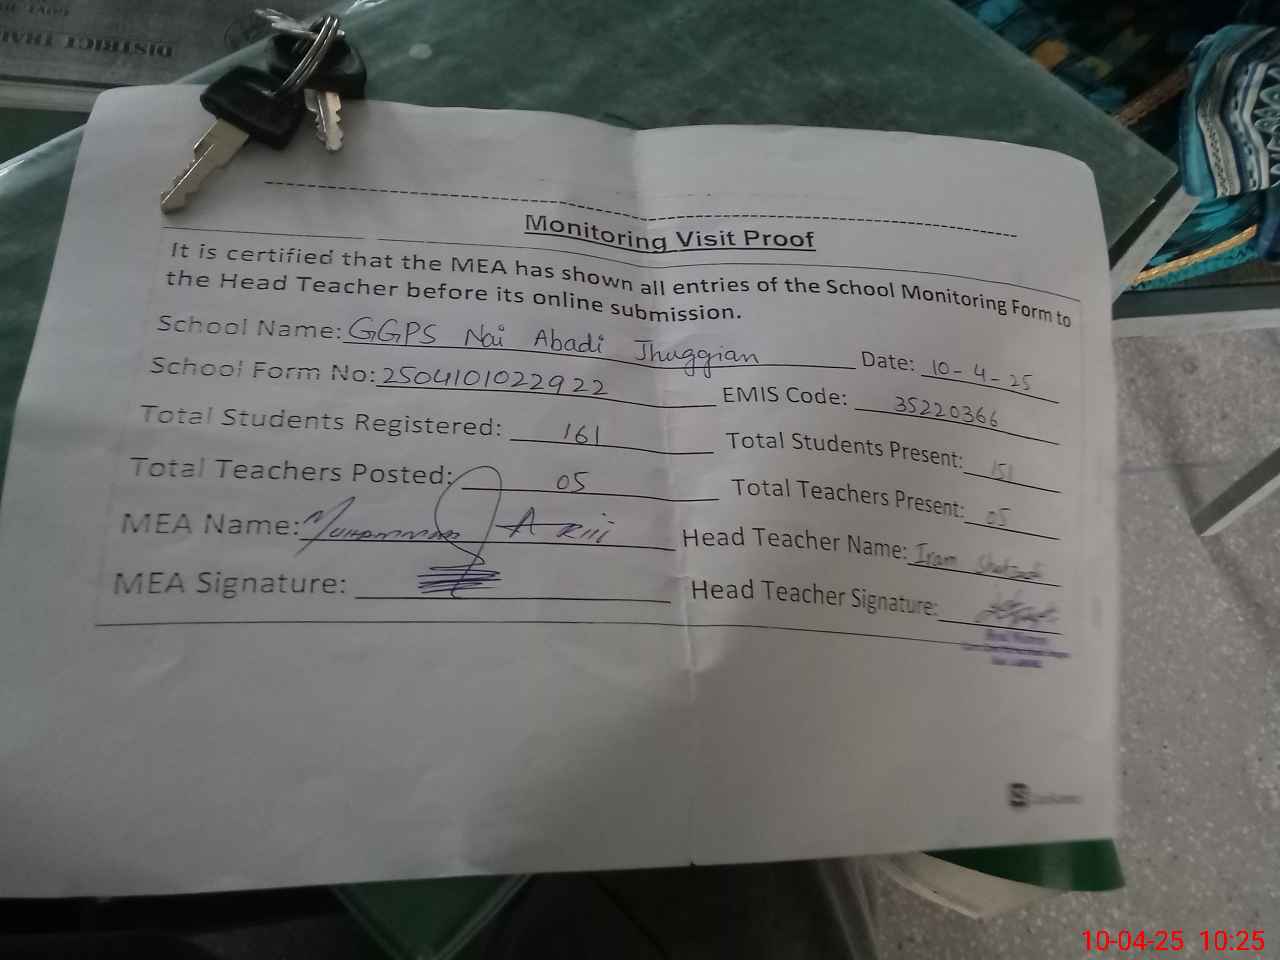 DISTRICT
Monitoring Visit Proof
It is certified that the MEA has shown all entries of the School Monitoring Form to
the Head Teacher before its online submission.
School Name: GGPS Nai Abadi Jhuggian Date: 10-4-25
School Form No: 2504101022922 EMIS Code: 35220366
Total Students Registered: 161 Total Students Present: 151
Total Teachers Posted: 05 Total Teachers Present: 05
MEA Name: Muhammad Head Teacher Name: Iram
MEA Signature: Head Teacher Signature:
10-04-25 10:25